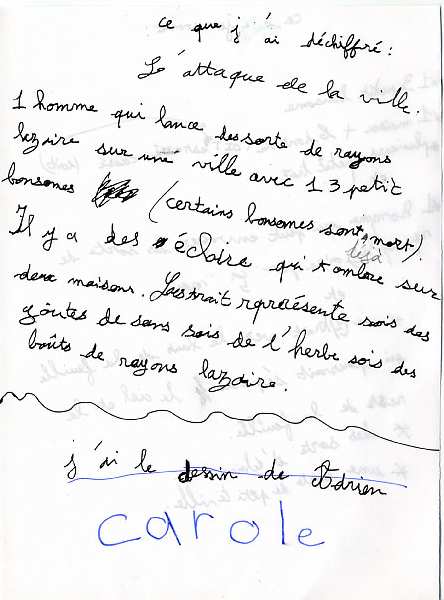 ce que j'ai déchiffré :
L'attaque de la ville.
1 homme qui lance des sorte de rayons
lazaire sur une ville avec 13 petit
bonsomes (certains bonsomes sont mort).
déjà
Il y a des éclaire qui tombre sur
deux maisons. Las trait représente sois des
goûtes de sans sois de l'herbe sois des
boûts de rayons lazaire.
j'ai le dessin de Adrien
carole